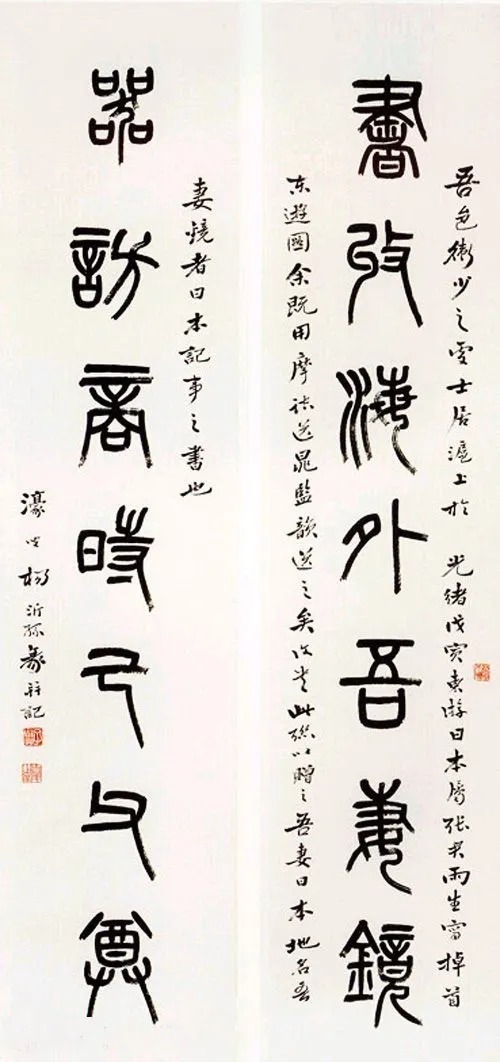 書攷海外吾妻鏡
吾邑衛少之士居滬上於 光緒戊寅東游日本屬張君雨生寫掉首
東遊圖余既用摩詰送晁監韻送之矣書此聯以贈之吾妻日本地名吾
器訪商時己父尊
妻鏡者日本記事之書也
濠叟楊沂孫篆并記